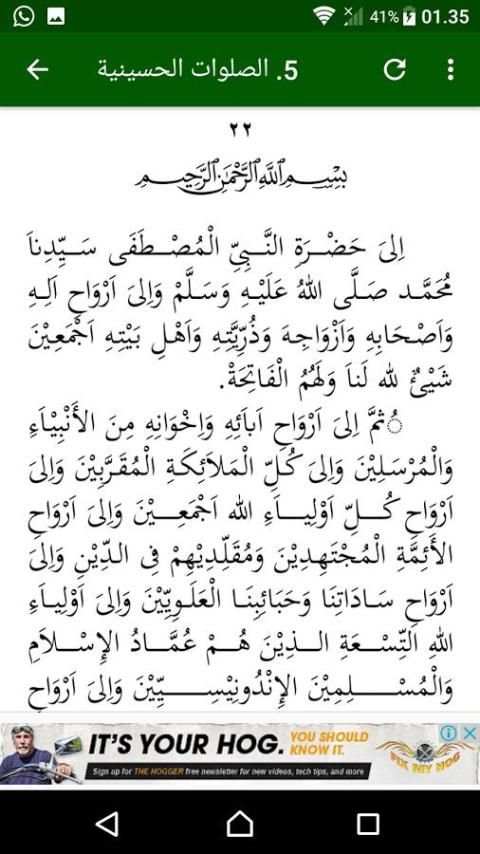 41% 01.35
5. الصلوات الحسينية
٢٢
بِسْمِ اللَّهِ الرَّحْمَنِ الرَّحِيمِ
اِلىَ حَضْرَةِ النَّبِيِّ الْمُصْطَفَى سَيِّدِناَ
مُحَمَّد صَلَّى اللهُ عَلَيْهِ وَسَلَّمْ وَاِلىَ اَرْوَاحِ اَلِهِ
وَاَصْحَابِهِ وَاَزْوَاجِهَ وَذُرِّيَّتِهِ وَاَهْلِ بَيْتِهِ اَجْمَعِيْنَ
شَيْئٌ لله لَناَ وَلَهُمُ الْفَاتِحَةْ.
ُثمَّ اِلىَ اَرْوَاحِ اَباَئِهِ وَاِخْوَانِهِ مِنَ الأَنْبِيْاَءِ
وَالْمُرْسَلِيْنَ وَاِلىَ كُلِّ الْمَلاَئِكَةِ الْمُقَرَّبِيْنَ وَاِلىَ
اَرْوَاحِ كُلِّ اَوْلِيـاَءِ الله اَجْمَعِـيْنَ وَاِلىَ اَرْوَاحِ
الأَئِمَّةِ الْمُجْتَهِدِيْنَ وَمُقَلِّدِيْهِمْ فِى الدِّيْنِ وَاِلىَ
اَرْوَاحِ سَادَاتِنَا وَحَبَائِبِنَا الْعَلَوِيِّيْنَ وَاِلىَ اَوْلِيَاءِ
اللهِ اَلتِّسْعَةِ الـذِيْنَ هُـمْ عُمَّادُ الإِسْلاَمِ
وَالْمُسْـلِمِيْنَ الإِنْدُونِيْسِـيِّيْنَ وَاِلىَ اَرْوَاحِ
IT'S YOUR HOG. YOU SHOULD KNOW IT.
Sign up for THE HOGGER free newsletter for new videos, tech tips, and more
FIX MY HOG